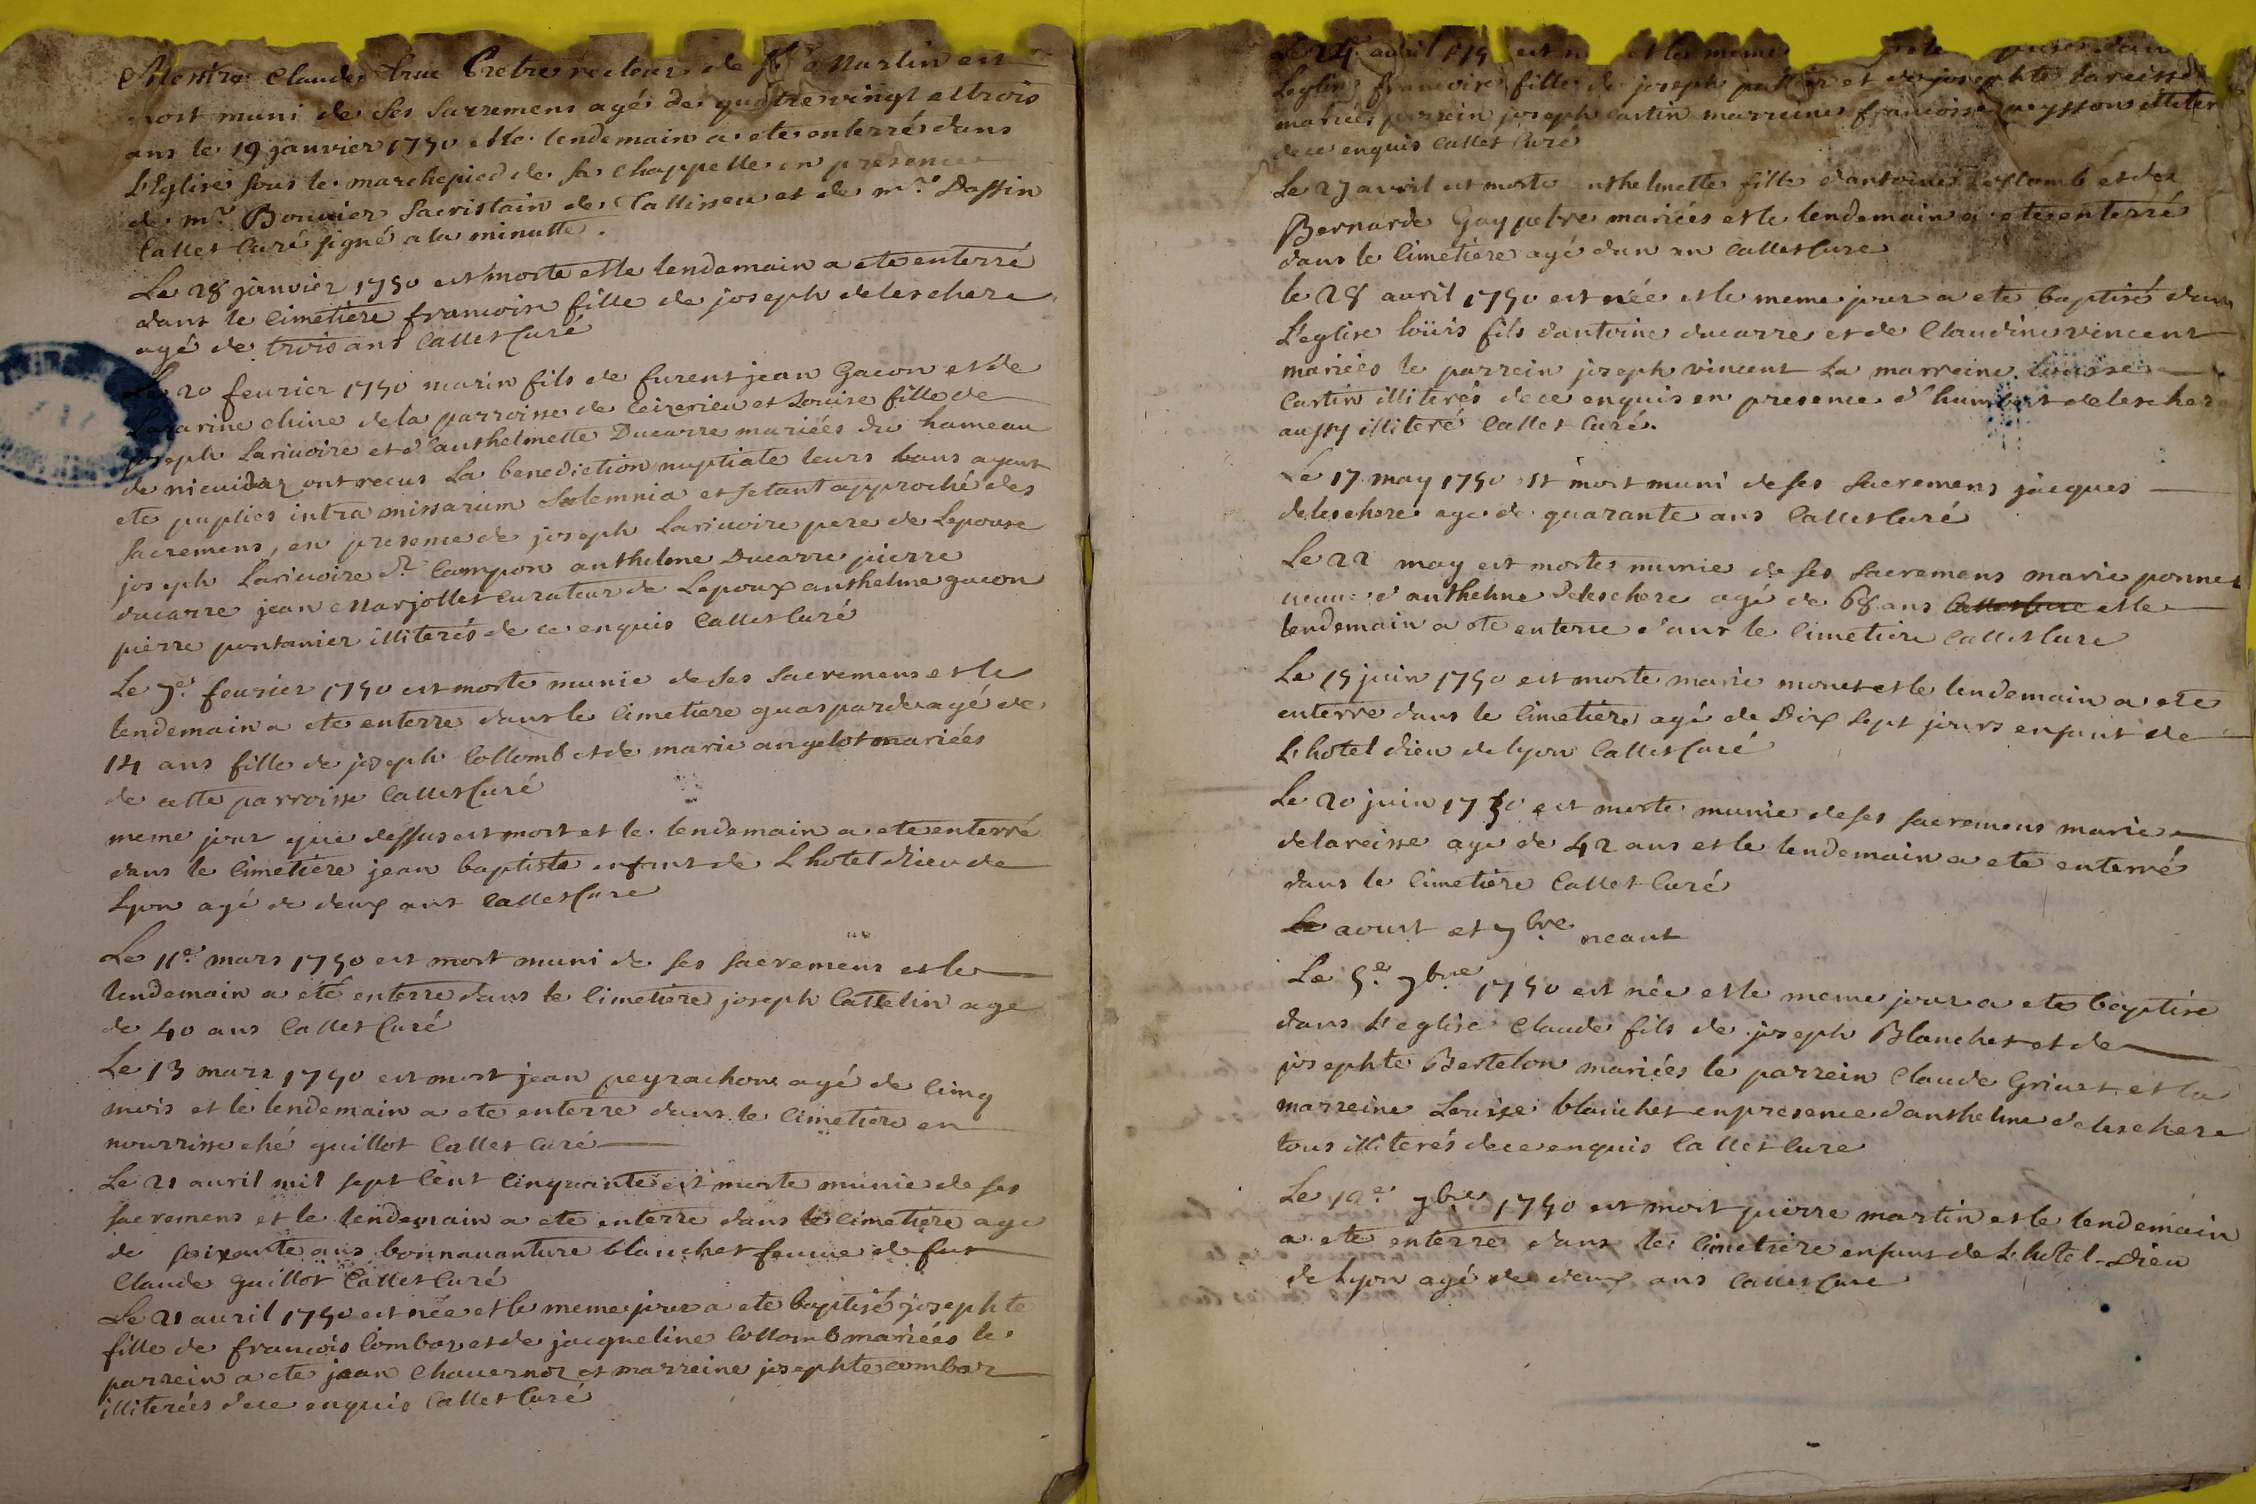 Messire Claude true Pretre recteur de St Martin est
mort muni de ses sacremens agé de quatre vingt et trois
ans le 19 janvier 1750 et le lendemain a ete enterré dans
L'Eglise sous le marchepied de sa chappelle en presence
de mr. Bonnier Sacristain de Callisseu et de mr. Daffin
Callet Curé signé a la minutte.
Le 28 janvier 1750 est morte et le lendemain a ete enterré
dans le Cimetière francoise fille de joseph deleschere
agé de trois ans Callet Curé
Le 20 feurier 1750 marin fils de furent jean Gacon et de
Lazarine chine de la parroisse de Ceizerieu et Louise fille de
joseph Lariuoire et d'anthelmette Ducarre mariées du hameau
de ont recus La benediction nuptiale leurs bans ayent
ete puplies intra missarum Solemnia et setant approché des
sacremens, en presence de joseph Lariuoire pere de Lepouse
joseph Lariuoire dt. Campon anthelme Ducarre pierre
ducarre jean Marjollet curateur de Lepoux anthelme gacon
pierre pontanier illiterés de ce enquis Callet Curé
Le 7e. feurier 1750 est morte munie de ses sacremens et le
lendemain a ete enterre dans le Cimetiere guasparde agé de
14 ans fille de joseph Collomb et de marie angelot mariées
de cette parroisse Callet Curé
meme jour que dessus est mort et le lendemain a ete enterré
dans le Cimetière jean baptiste enfant de L'hotel dieu de
Lyon agé de deux ans Callet Cure
Le 11e. mars 1750 est mort muni de ses sacremens et le
lendemain a eté enterre dans le Cimetiere joseph Cattelin age
de 40 ans Callet Curé
Le 13 mars 1750 est mort jean peyrachon agé de Cinq
mois et le lendemain a ete enterre dans le Cimetiere en
nourrisse ché guillot Callet Curé
Le 21 avril mil sept Cent Cinquante est morte munie de ses
sacremens et le lendemain a ete enterre dans le Cimetiere age
de soixante ans bonnauanture blanchet femme de fut
Claude guillot Callet Curé
Le 21 auril 1750 est née et le meme jour a ete baptisé josephte
fille de francois Combaz et de jacqueline Collomb mariées le
parrein a ete jean Chauernoz et marreine josephte combaz
illiterées dece enquis Callet Curé
Le 24 auril et le meme
Leglise francoise fille de joseph et de josephte lareisse
mariées parrein joseph Castin marreine francoise peysson illiter
dece enquis Callet Curé
Le 27 avril est morte anthelmette fille d'antoine Collomb et de
Bernarde Guypetre mariées et le lendemain a ete enterré
dans le Cimetière agé dun an Callet Cure
le 28 auril 1750 est née et le meme jour a ete baptisé dans
L'eglise loüis fils dantoine ducarre et de Claudine vincent
mariées le parrein joseph vincent La marreine Louise
Castin illiterés de ce enquis en presence d'humbert deleschere
aussy illiteré Callet Curé.
Le 17 may 1750 est mort muni de ses Sacremens jacques
deleschere age de quarante ans Callet Curé
Le 22 may est morte munie de ses Sacremens marie ponnet
ueuue d'anthelme deleschere agé de 68 ans Callet Cure et le
lendemain a ete enterre dans le Cimetiere Callet Cure
Le 15 juin 1750 est morte marie monet et le lendemain a ete
enterre dans le Cimetière agé de Dix sept jours enfant de
L'hotel dieu de lyon Callet Curé
Le 20 juin 1750 est morte munie de ses sacremens marie
delareisse age de 42 ans et le lendemain a ete enterré
dans le Cimetière Callet Curé
Le aoust et 7bre neant
Le 5e. 7bre 1750 est née et le meme jour a ete baptisé
dans L'eglise Claude fils de joseph Blanchet et de
josephte Bertelon mariées le parrein Claude Griart et la
marreine Louise blanchet en presence d'anthelme deleschere
tous illiterés dece enquis Callet Cure
Le 7bre 1750 est mort pierre martin et le lendemain
a ete enterre dans le Cimetiere enfant de L'hotel-Dieu
de Lyon agé de deux ans Callet Cure